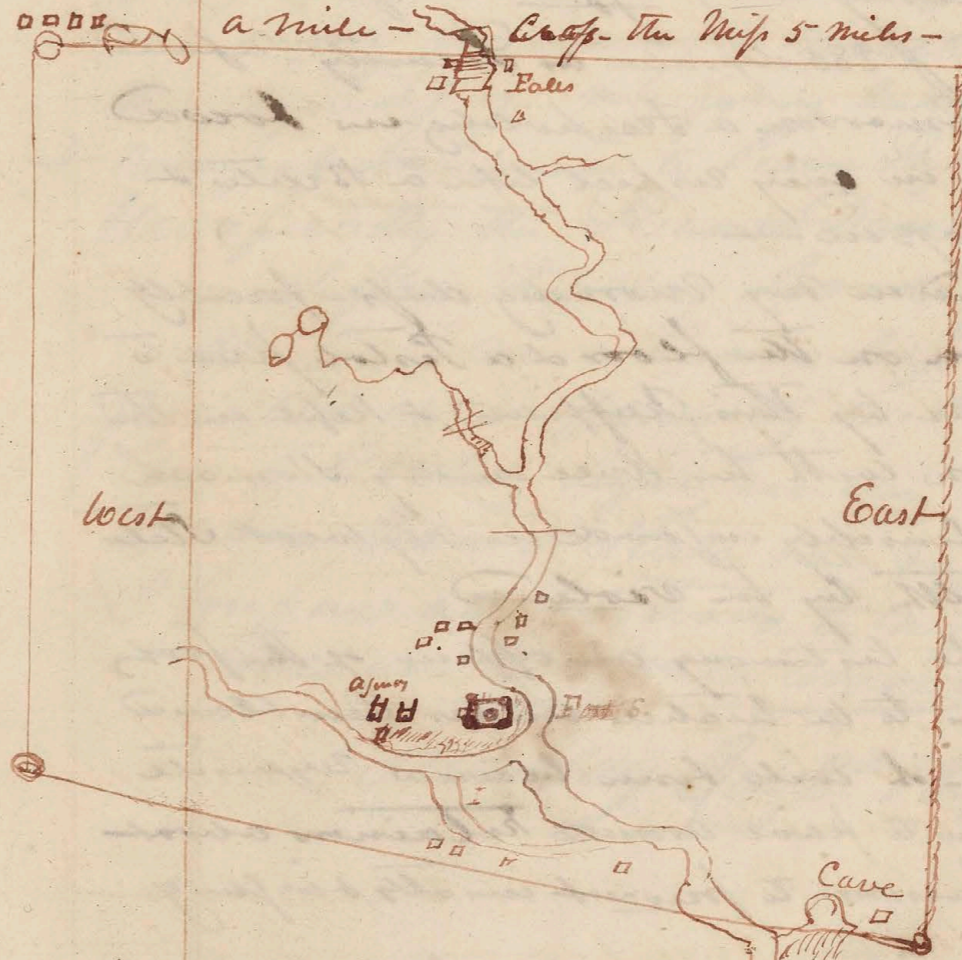 a mile — Cross the Miss 5 miles —
Falls
West
East
Fort S.
I
Cave